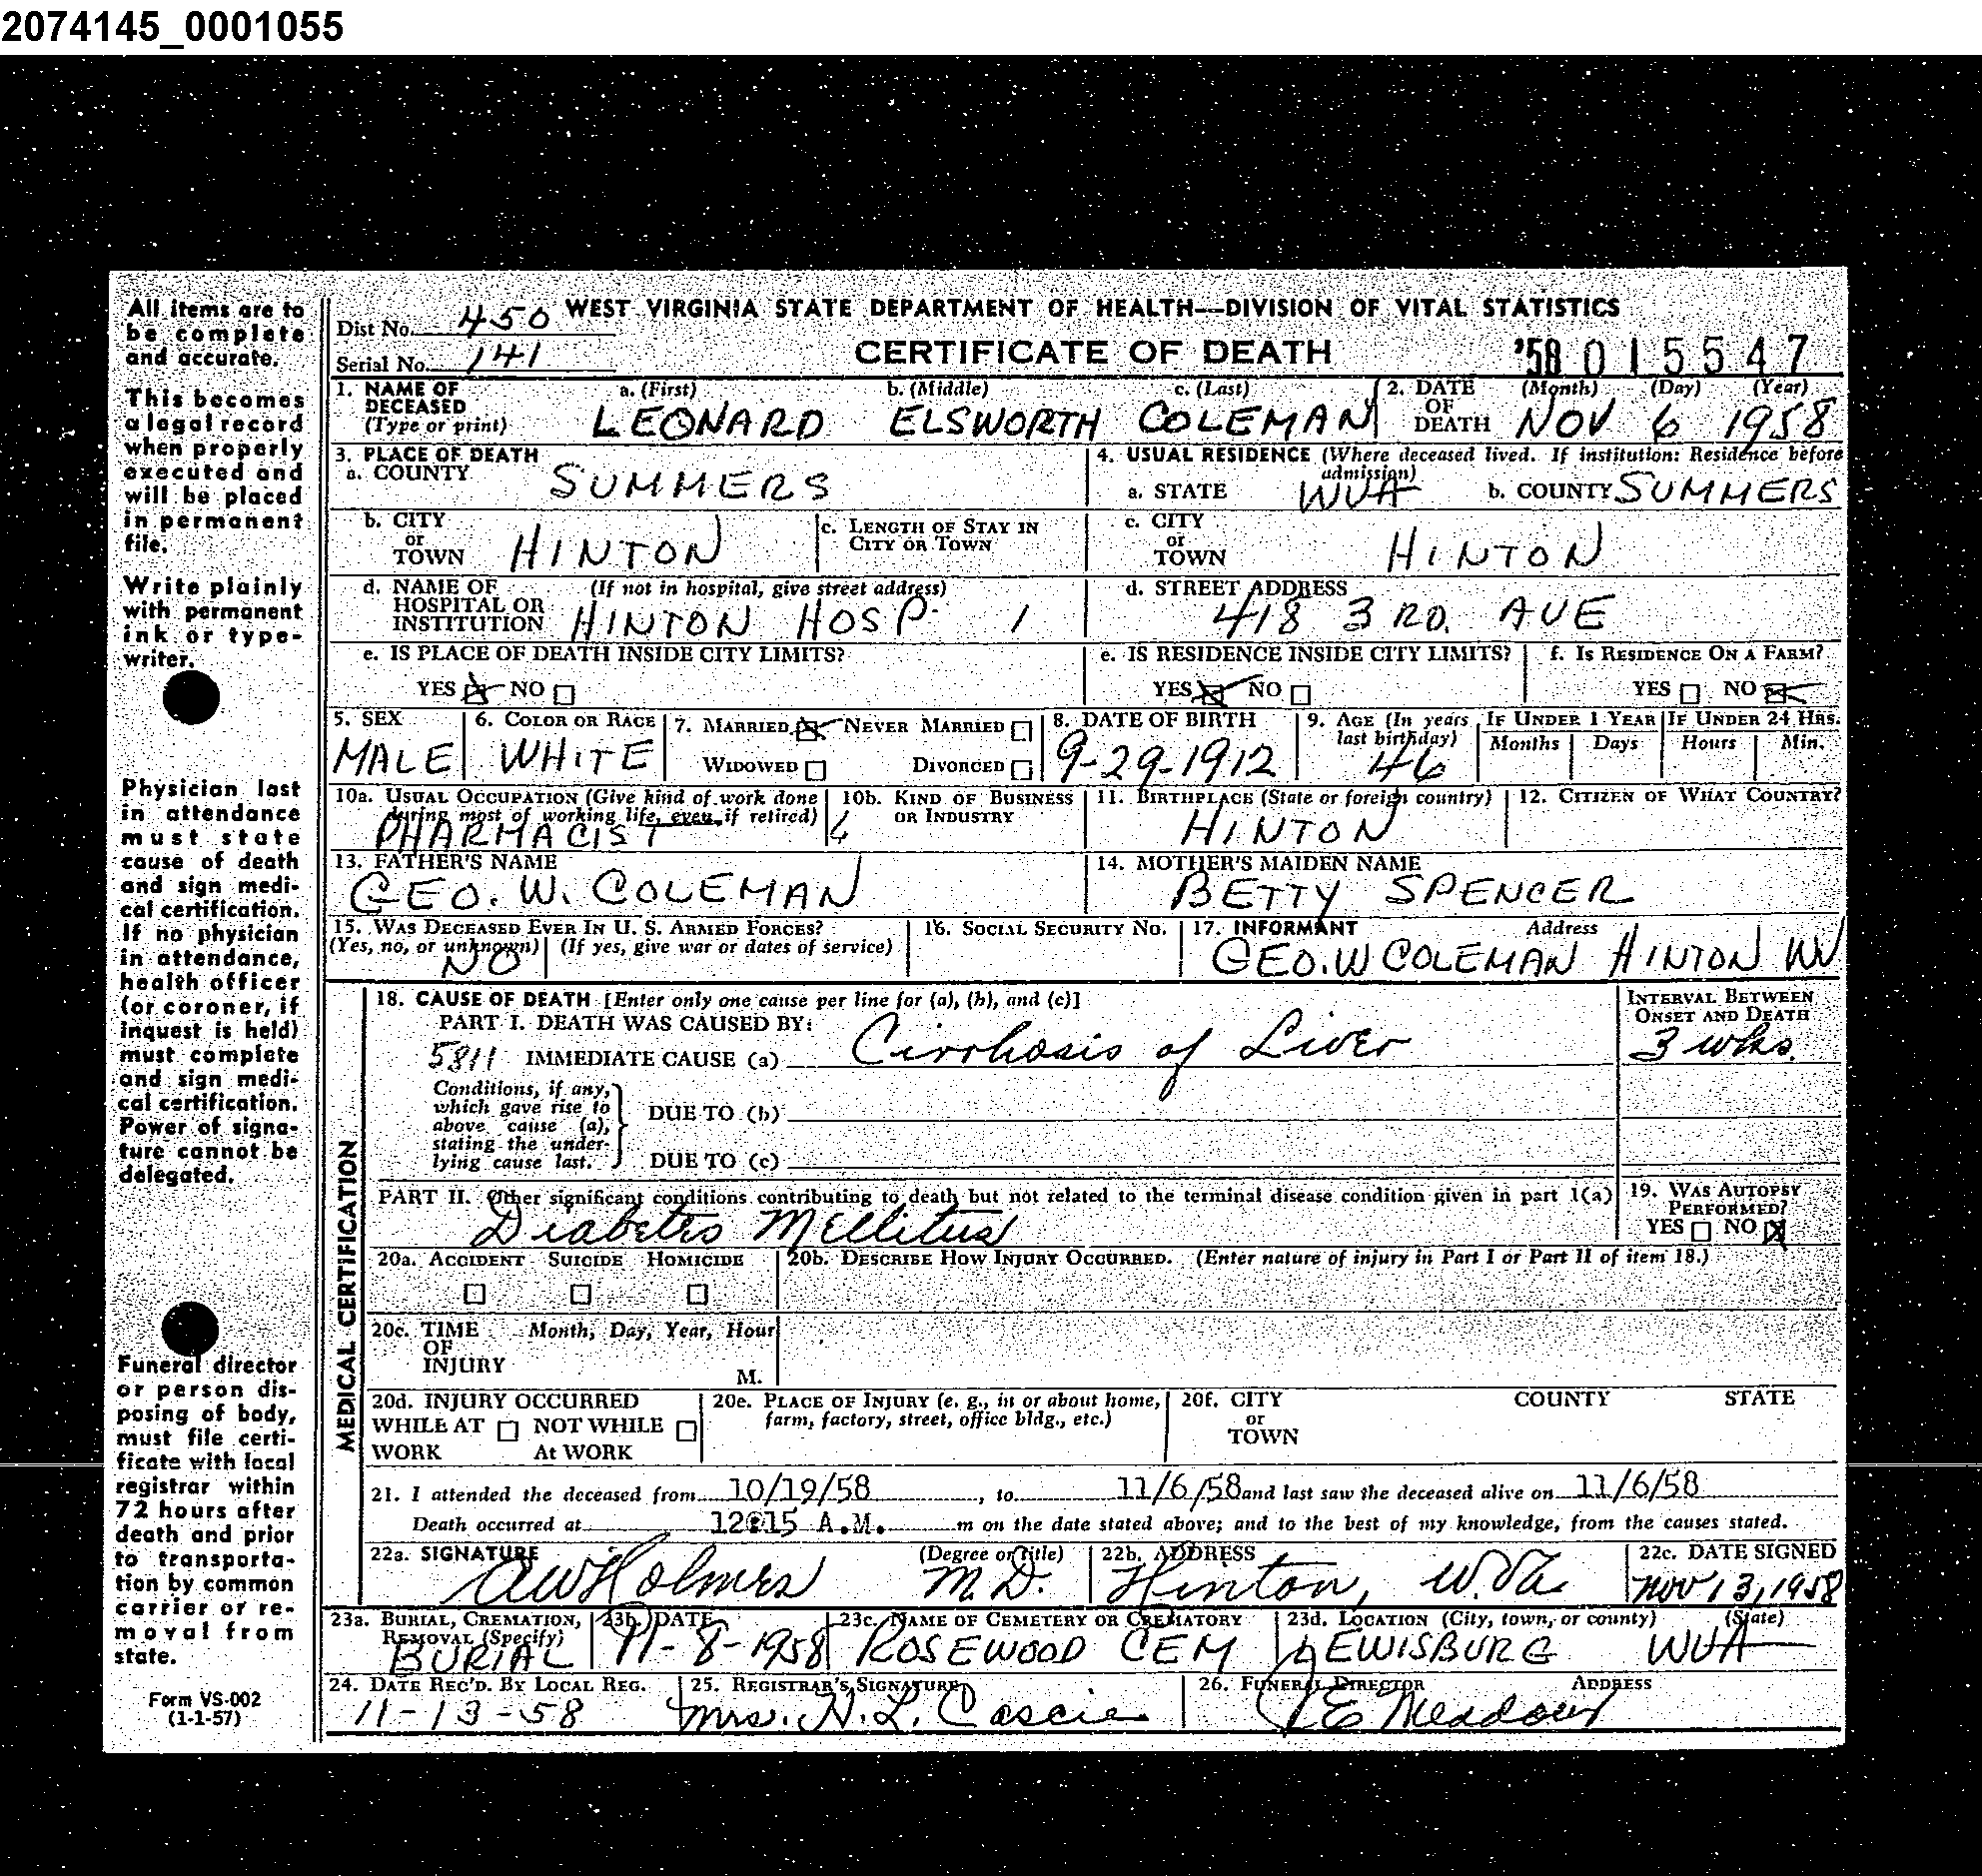 2074145_0001055
All items are to
be complete
and accurate.
This becomes
a legal record
when properly
executed and
will be placed
in permanent
file.
Write plainly
with permanent
ink or type-
writer.
Physician last
in attendance
must state
cause of death
and sign medi-
cal certification.
If no physician
in attendance,
health officer
(or coroner, if
inquest is held)
must complete
and sign medi-
cal certification.
Power of signa-
ture cannot be
delegated.
Funeral director
or person dis-
posing of body,
must file certi-
ficate with local
registrar within
72 hours after
death and prior
to transporta-
tion by common
carrier or re-
moval from
state.
Form VS-002
(1-1-57)
Dist No. 450 WEST VIRGINIA STATE DEPARTMENT OF HEALTH—DIVISION OF VITAL STATISTICS
Serial No. 141 CERTIFICATE OF DEATH '58 015547
1. NAME OF DECEASED (Type or print) a. (First) b. (Middle) c. (Last) 2. DATE OF DEATH (Month) (Day) (Year)
LEONARD ELSWORTH COLEMAN NOV 6 1958
3. PLACE OF DEATH 4. USUAL RESIDENCE (Where deceased lived. If institution: Residence before admission)
a. COUNTY SUMMERS a. STATE WVA b. COUNTY SUMMERS
b. CITY or TOWN HINTON c. LENGTH OF STAY IN CITY OR TOWN c. CITY or TOWN HINTON
d. NAME OF HOSPITAL OR INSTITUTION (If not in hospital, give street address) HINTON HOSP. 1 d. STREET ADDRESS 418 3RD. AVE
e. IS PLACE OF DEATH INSIDE CITY LIMITS? e. IS RESIDENCE INSIDE CITY LIMITS? f. IS RESIDENCE ON A FARM?
YES NO YES NO YES NO
5. SEX 6. COLOR OR RACE 7. MARRIED NEVER MARRIED 8. DATE OF BIRTH 9. AGE (In years last birthday) IF UNDER 1 YEAR IF UNDER 24 HRS.
MALE WHITE WIDOWED DIVORCED 9-29-1912 46 Months Days Hours Min.
10a. USUAL OCCUPATION (Give kind of work done during most of working life, even if retired) 10b. KIND OF BUSINESS OR INDUSTRY 11. BIRTHPLACE (State or foreign country) 12. CITIZEN OF WHAT COUNTRY?
PHARMACIST HINTON
13. FATHER'S NAME 14. MOTHER'S MAIDEN NAME
GEO. W. COLEMAN BETTY SPENCER
15. WAS DECEASED EVER IN U. S. ARMED FORCES? 16. SOCIAL SECURITY NO. 17. INFORMANT Address
(Yes, no, or unknown) (If yes, give war or dates of service)
NO GEO. W COLEMAN HINTON WV
MEDICAL CERTIFICATION
18. CAUSE OF DEATH [Enter only one cause per line for (a), (b), and (c)] INTERVAL BETWEEN ONSET AND DEATH
PART I. DEATH WAS CAUSED BY:
5811 IMMEDIATE CAUSE (a) Cirrhosis of Liver 3 wks.
Conditions, if any, which gave rise to above cause (a), stating the under- lying cause last.
DUE TO (b)
DUE TO (c)
PART II. Other significant conditions contributing to death but not related to the terminal disease condition given in part 1(a) 19. WAS AUTOPSY PERFORMED?
Diabetes Mellitus YES NO
20a. ACCIDENT SUICIDE HOMICIDE 20b. DESCRIBE HOW INJURY OCCURRED. (Enter nature of injury in Part I or Part II of item 18.)
20c. TIME OF INJURY Month, Day, Year, Hour M.
20d. INJURY OCCURRED 20e. PLACE OF INJURY (e. g., in or about home, farm, factory, street, office bldg., etc.) 20f. CITY or TOWN COUNTY STATE
WHILE AT WORK NOT WHILE At WORK
21. I attended the deceased from 10/19/58, to 11/6/58 and last saw the deceased alive on 11/6/58
Death occurred at 12:15 A.M. m on the date stated above; and to the best of my knowledge, from the causes stated.
22a. SIGNATURE (Degree or title) 22b. ADDRESS 22c. DATE SIGNED
AW Holmes M.D. Hinton, W.Va. Nov 13, 1958
23a. BURIAL, CREMATION, REMOVAL (Specify) 23b. DATE 23c. NAME OF CEMETERY OR CREMATORY 23d. LOCATION (City, town, or county) (State)
BURIAL 11-8-1958 ROSEWOOD CEM LEWISBURG WVA
24. DATE REC'D. BY LOCAL REG. 25. REGISTRAR'S SIGNATURE 26. FUNERAL DIRECTOR ADDRESS
11-13-58 Mrs. H. L. Cascie JE Meadows